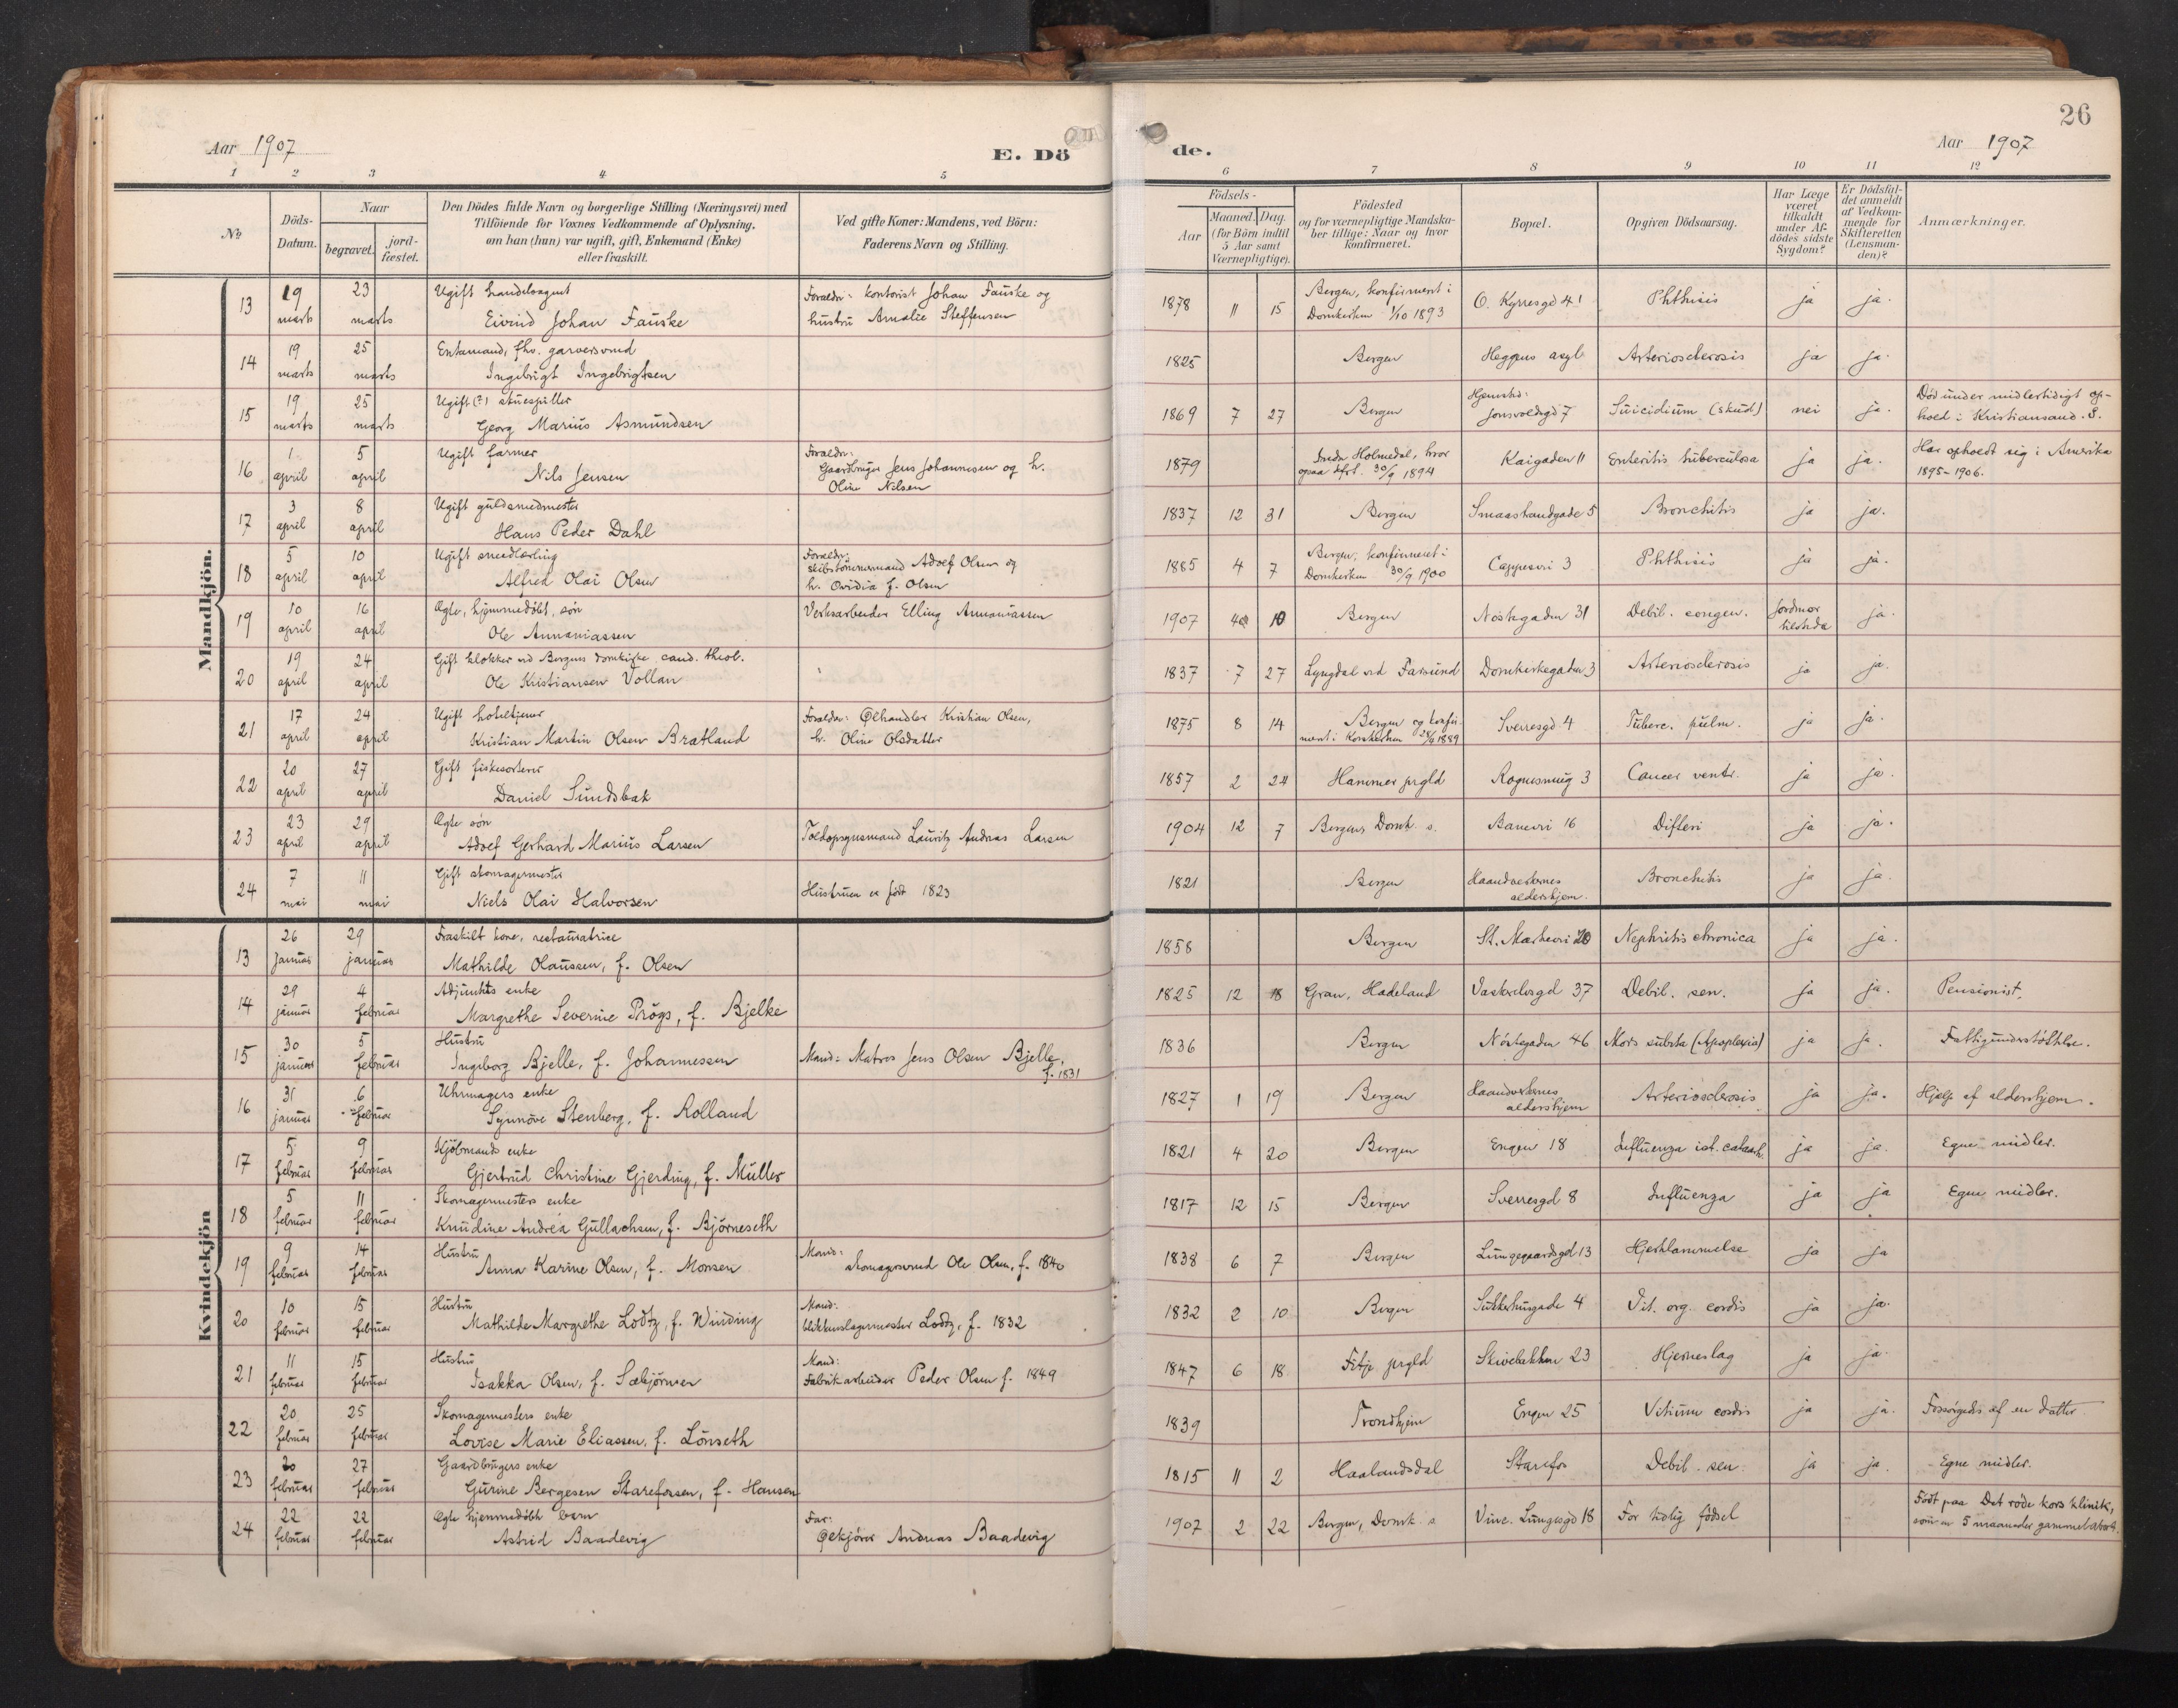 26
Aar 1907
E. Dö
de.
Aar 1907
1 2 3 4 5 6 7 8 9 10 11 12
No
Döds-Datum.
Naar
begravet.
jord-fæstet.
Den Dödes fulde Navn og borgerlige Stilling (Næringsvei) med
Tilföiende for Voxnes Vedkommende af Oplysning,
om han (hun) var ugift, gift, Enkemand (Enke)
eller fraskilt.
Ved gifte Koner: Mandens, ved Börn:
Faderens Navn og Stilling.
Födsels-
Aar
Maaned. Dag.
(for Börn indtil
5 Aar samt
Værnepligtige).
Födested
og for værnepligtige Mandska-
ber tillige: Naar og hvor
konfirmeret.
Bopæl.
Opgiven Dödsaarsag.
Har Læge
været
tilkaldt
under Af-
dödes sidste
Sygdom?
Er Dödsfal-
det anmeldt
af Vedkom-
mende for
Skifteretten
(Lensman-
den)?
Anmærkninger.
Mandkjön.
13 19 marts 23 marts Ugift handelsagent
Eivind Johan Fauske
Foraeldr: kontorist Johan Fauske og
hustru Amalie Steffensen
1878 11 15 Bergen, konfirmert i
Domkirken 1/10 1893 O. Kyrresgd 41 Phthisis ja ja.
14 19 marts 25 marts Enkemand, fhv. garversvend
Ingebrigt Ingebrigtsen
1825 Bergen Heggens asyl Arteriosclerosis ja ja.
15 19 marts 25 marts Ugift (?) skuespiller
Georg Marius Asmundsen
1869 7 27 Bergen Hjemsted:
Jonsvoldsgd 7 Suicidium (skud) nei ja.
Död under midlertidigt op-
hold i Kristiansand. S.
16 1 april 5 april Ugift farmer
Nils Jensen
Foraeldr:
Gaardbruger Jens Johannesen og h.
Oline Nilsen
1879 Indre Holmedal, hvor
ogsaa 30/9 1894 Kaigaden 11 Enteritis tuberculosa ja ja.
Har opholdt sig i Amerika
1895-1906.
17 3 april 8 april Ugift guldsmedmester
Hans Peder Dahl
1837 12 31 Bergen Smaastrandgade 5 Bronchitis ja ja.
18 5 april 10 april Ugift smedlærling
Alfred Olai Olsen
Foraeldr:
skibstömmermand Adolf Olsen og
h. Ovidia f. Olsen
1885 4 7 Bergen, konfirmeret i
Domkirken 30/9 1900 Cappesvei 3 Phthisis ja ja.
19 10 april 16 april Ægte, hjemmedöbt, sön
Ole Annaniassen
Verksarbeider Elling Annaniassen
1907 4 10 Bergen Nöstegaden 31 Debil. congen. Jordmor
tilstede ja.
20 19 april 24 april Gift klokker ved Bergens domkirke, cand. theol.
Ole Kristiansen Vollan
1837 7 27 Lyngdal ved Farsund Domkirkegaden 3 Arteriosclerosis ja ja.
21 17 april 24 april Ugift hoteltjener
Kristian Martin Olsen Bratland
Foraeldr: Ølhandler Kristian Olsen,
h. Oline Olsdatter
1875 8 14 Bergen og konfir-
mert i Korskirken 1889 Sverresgd. 4 Tuberc. pulm. ja ja.
22 20 april 27 april Gift fiskesorterer
Daniel Sundsbak
1857 2 24 Hammer prgld 3 Cancer ventr. ja ja.
23 23 april 29 april Ægte sön
Adolf Gerhard Marius Larsen
Toldopsynsmand Lauritz Andreas Larsen
1904 12 7 Bergens Domk. s. Banevei 16 Difteri ja ja.
24 7 mai 11 mai Gift skomagermester
Niels Olai Halvorsen
Hustruen er født 1823
1821 Bergen Haandverkernes
aldershjem. Bronchitis ja ja.
Kvindekjön
13 26 januar 29 januar Fraskilt kone, restauratrice
Mathilde Olaussen, f. Olsen
1858 Bergen St. Markevei 20 Nephritis chronica ja ja.
14 29 januar 4 februar Adjunkts enke
Margrethe Severine Prögs, f. Bjelke
1825 12 18 Gran, Hadeland Vaskerelvsgd 37 Debil. sen. ja ja. Pensionist.
15 30 januar 5 februar Hustru
Ingeborg Bjelle, f. Johannessen
Mand: Matros Jens Olsen Bjelle,
f. 1831
1836 Bergen Nöstegaden 46 Mors subita (Apoplexia) ja ja. Fattigunderstöttelse.
16 31 januar 6 februar Uhrmagers enke
Synnöve Stenberg, f. Rolland
1827 1 19 Bergen Haandverkernes
aldershjem Arteriosclerosis ja ja. Hjelp af aldershjem.
17 5 februar 9 februar Kjöbmands enke
Gjertrud Christine Gjerding, f. Müller
1821 4 20 Bergen Engen 18 Influenza ja ja. Egne midler.
18 5 februar 11 februar Skomagermesters enke
Knudine Andrea Gullachsen, f. Bjørneseth
1817 12 15 Bergen Sverresgd 8 Influenza ja ja Egne midler.
19 9 februar 14 februar Hustru
Anna Karine Olsen, f. Monsen
Mand:
skomagersvend Ole Olsen, f. 1840
1838 6 7 Bergen Lungegaardsgd 13 Hjertelammelse ja ja
20 10 februar 15 februar Hustru
Mathilde Margrethe Lodtz, f. Winding
Mand:
blikkenslagermester Lodtz, f. 1832
1832 2 10 Bergen Sukkerhusgade 4 Vit. org. cordis ja ja.
21 11 februar 15 februar Hustru
Isakka Olsen, f. Sæbjörnsen
Mand:
Fabrikarbeider Peder Olsen f. 1849
1847 6 18 Fitje prgld Skivebakken 23 Hjerneslag ja ja.
22 20 februar 25 februar Skomagermesters enke
Lovise Marie Eliassen, f. Lönseth
1839 Trondhjem Engen 25 Vitium cordis ja ja. Forsörgedes af en datter
23 20 februar 27 februar Gaardbrugers enke
Gurine Bergesen Starefossen, f. Hansen
1815 11 2 Haalandsdal Starefos Debil. sen. ja ja. Egne midler.
24 22 februar 22 februar Ægte hjemmedöbt barn
Astrid Baadevig
Far:
Ølkjörer Andreas Baadevig
1907 2 22 Bergen, Domk. s Vinc. Lungesgd 18 For tidlig födsel
Födt paa Det röde kors klinik,
som en 5 maaneder gammel abort.